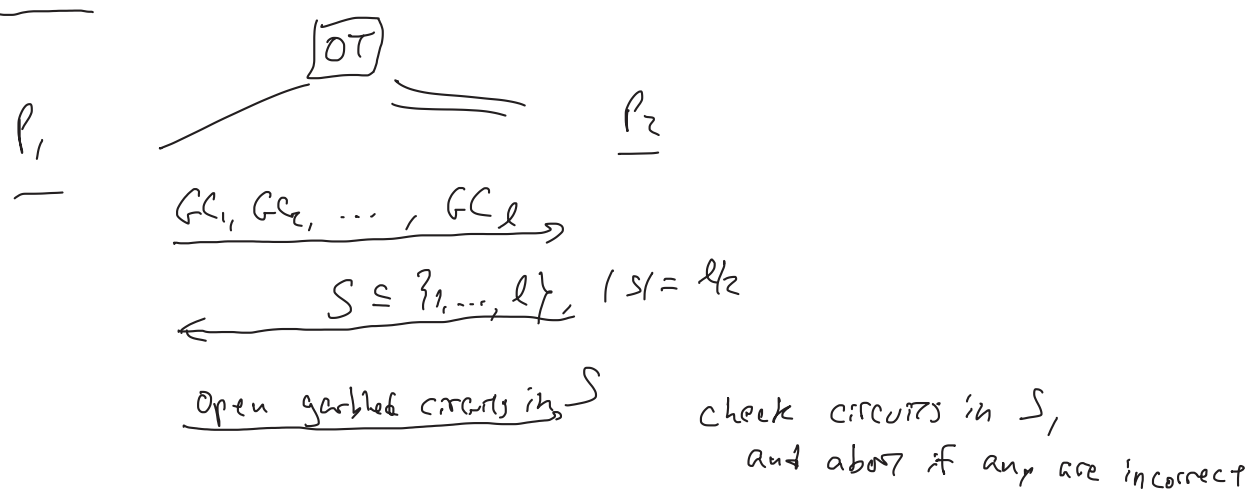 OT
P₁
P₂
GC₁, GC₂, ..., GC_ℓ
S ⊆ {1, ..., ℓ}, |S| = ℓ/2
Open garbled circuits in S
check circuits in S,
and abort if any are incorrect